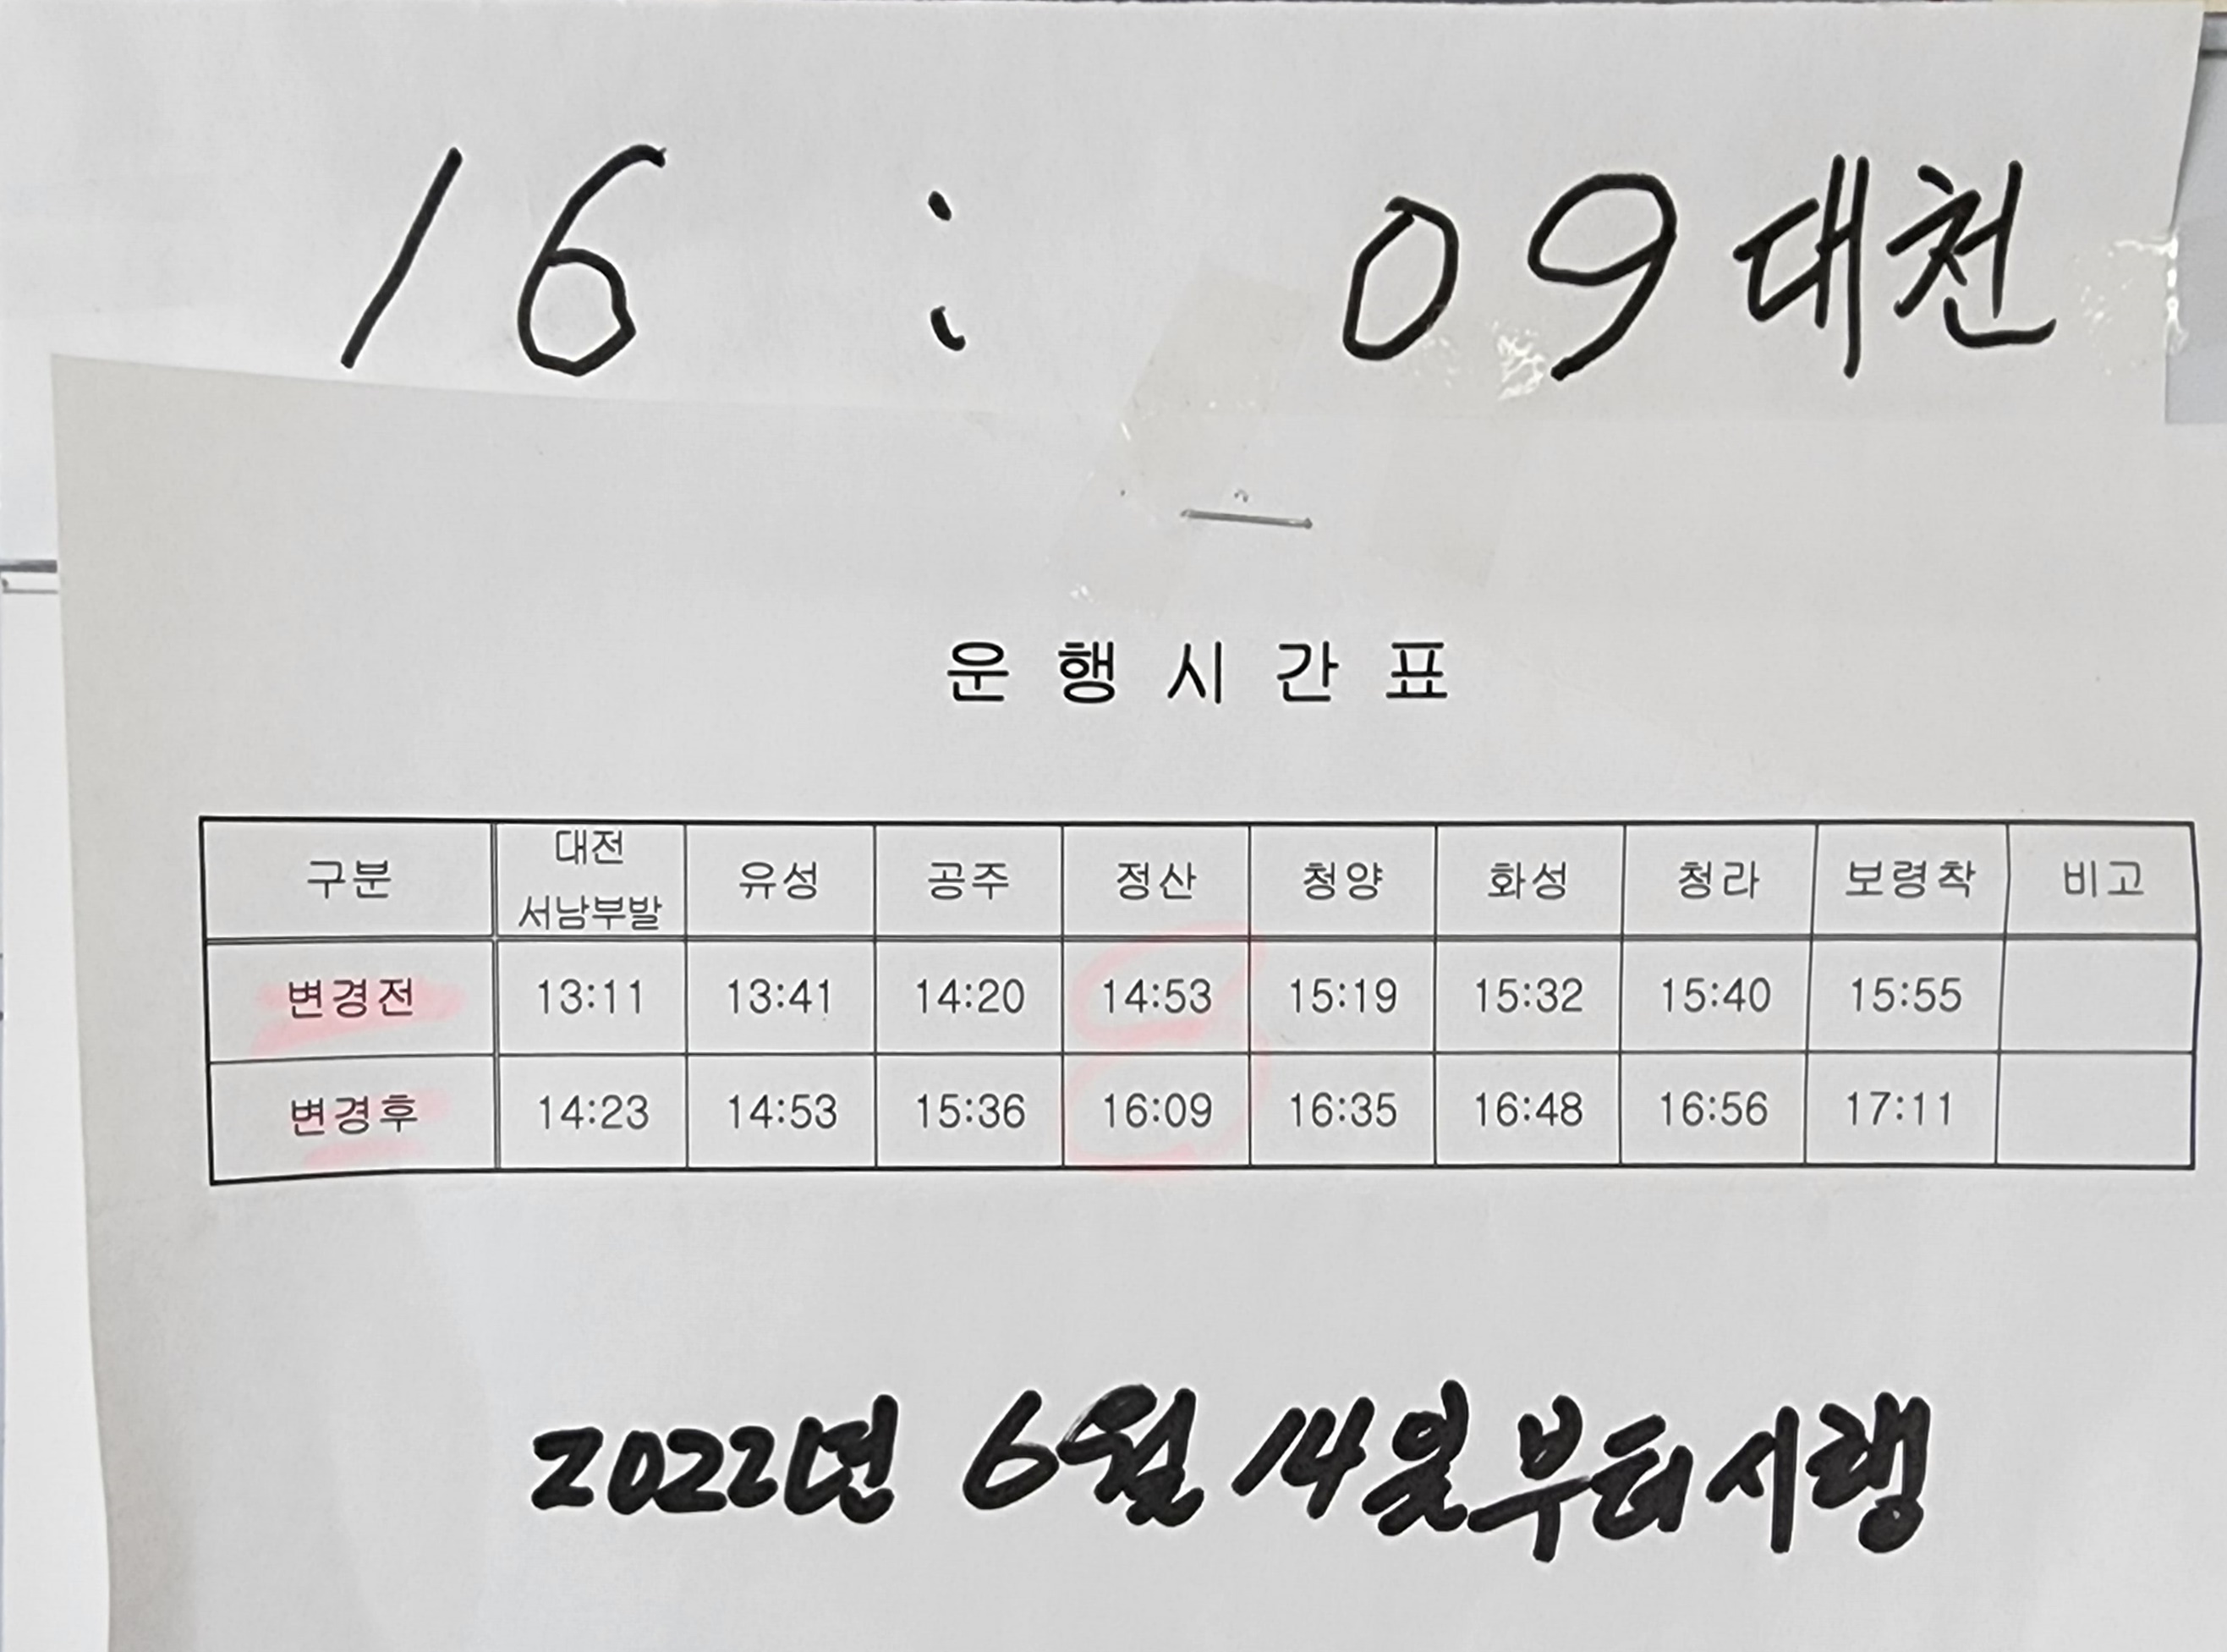 16 : 09 대천
운 행 시 간 표
구분 대전 서남부발 유성 공주 정산 청양 화성 청라 보령착 비고
변경전 13:11 13:41 14:20 14:53 15:19 15:32 15:40 15:55
변경후 14:23 14:53 15:36 16:09 16:35 16:48 16:56 17:11
2022년 6월 14일부터 시행